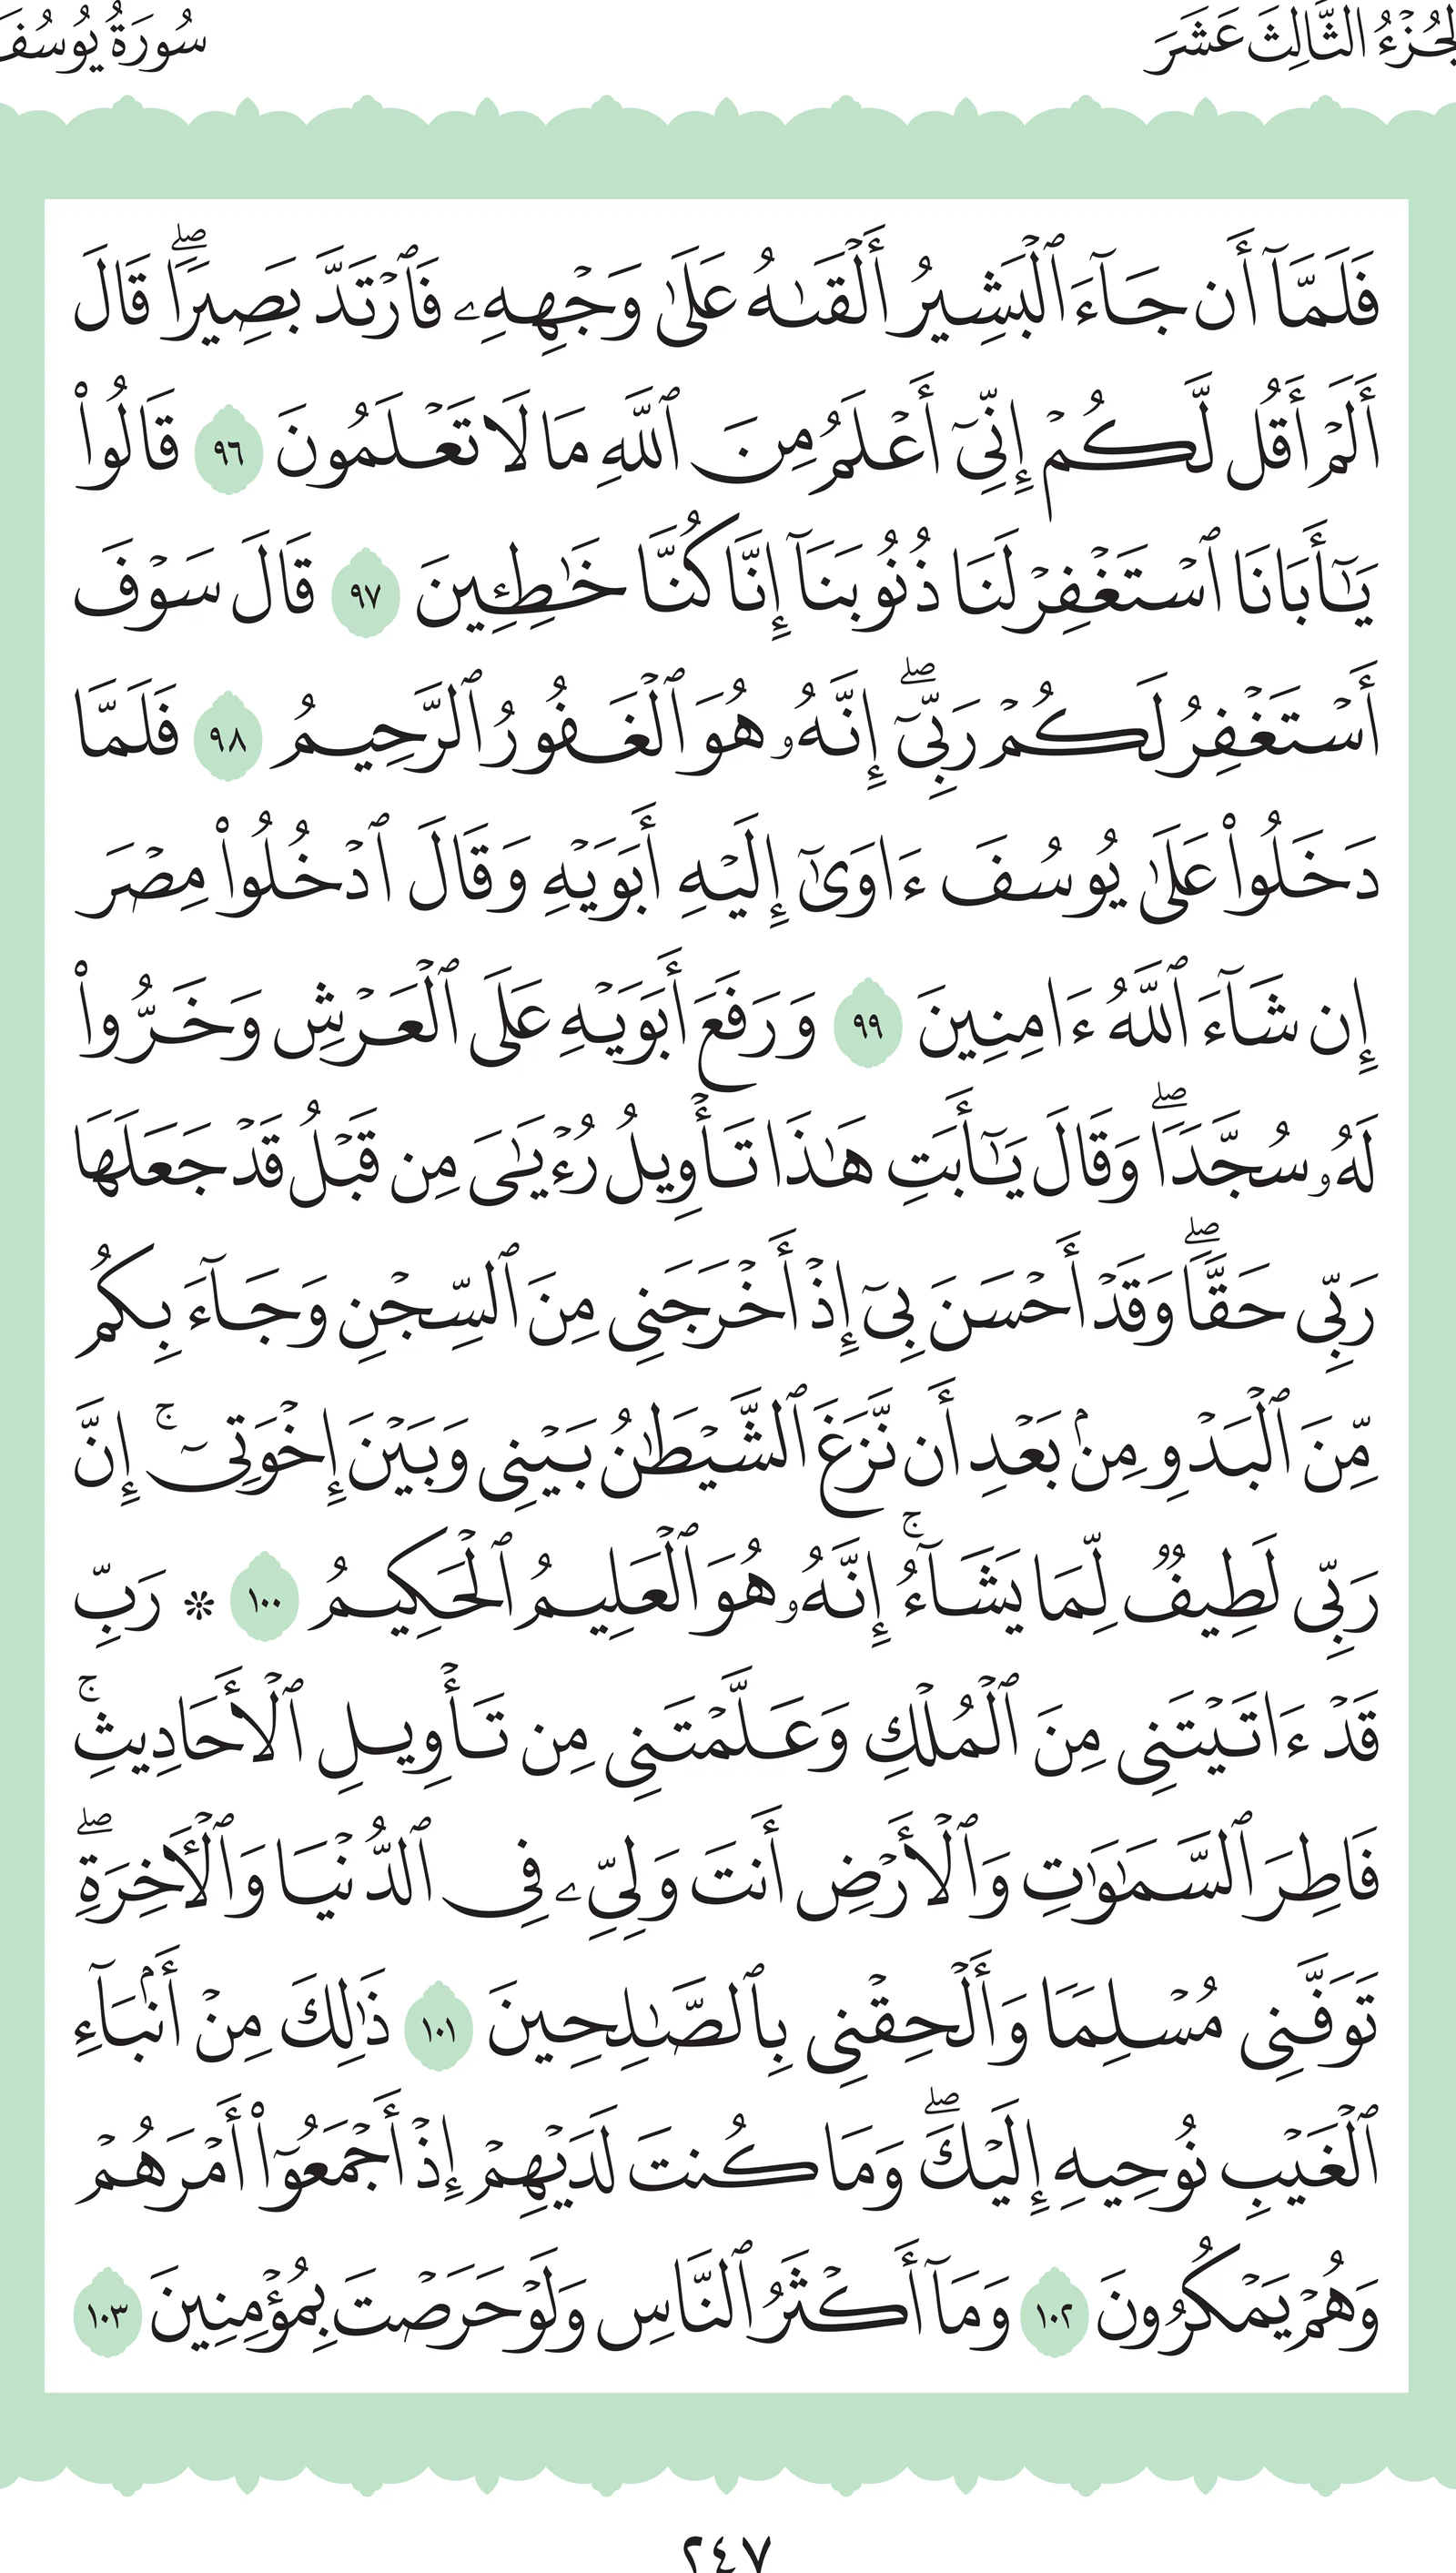 الجُزْءُ الثَّالِثَ عَشَرَ سُورَةُ يُوسُفَ
فَلَمَّآ أَن جَآءَ ٱلْبَشِيرُ أَلْقَىٰهُ عَلَىٰ وَجْهِهِۦ فَٱرْتَدَّ بَصِيرًاۖ قَالَ
أَلَمْ أَقُل لَّكُمْ إِنِّىٓ أَعْلَمُ مِنَ ٱللَّهِ مَا لَا تَعْلَمُونَ ٩٦ قَالُوا۟
يَـٰٓأَبَانَا ٱسْتَغْفِرْ لَنَا ذُنُوبَنَآ إِنَّا كُنَّا خَـٰطِـِٔينَ ٩٧ قَالَ سَوْفَ
أَسْتَغْفِرُ لَكُمْ رَبِّىٓۖ إِنَّهُۥ هُوَ ٱلْغَفُورُ ٱلرَّحِيمُ ٩٨ فَلَمَّا
دَخَلُوا۟ عَلَىٰ يُوسُفَ ءَاوَىٰٓ إِلَيْهِ أَبَوَيْهِ وَقَالَ ٱدْخُلُوا۟ مِصْرَ
إِن شَآءَ ٱللَّهُ ءَامِنِينَ ٩٩ وَرَفَعَ أَبَوَيْهِ عَلَى ٱلْعَرْشِ وَخَرُّوا۟
لَهُۥ سُجَّدًاۖ وَقَالَ يَـٰٓأَبَتِ هَـٰذَا تَأْوِيلُ رُءْيَـٰىَ مِن قَبْلُ قَدْ جَعَلَهَا
رَبِّى حَقًّاۖ وَقَدْ أَحْسَنَ بِىٓ إِذْ أَخْرَجَنِى مِنَ ٱلسِّجْنِ وَجَآءَ بِكُم
مِّنَ ٱلْبَدْوِ مِنۢ بَعْدِ أَن نَّزَغَ ٱلشَّيْطَـٰنُ بَيْنِى وَبَيْنَ إِخْوَتِىٓۚ إِنَّ
رَبِّى لَطِيفٌ لِّمَا يَشَآءُۚ إِنَّهُۥ هُوَ ٱلْعَلِيمُ ٱلْحَكِيمُ ١٠٠ ۞ رَبِّ
قَدْ ءَاتَيْتَنِى مِنَ ٱلْمُلْكِ وَعَلَّمْتَنِى مِن تَأْوِيلِ ٱلْأَحَادِيثِۚ
فَاطِرَ ٱلسَّمَـٰوَٰتِ وَٱلْأَرْضِ أَنتَ وَلِىِّۦ فِى ٱلدُّنْيَا وَٱلْـَٔاخِرَةِۖ
تَوَفَّنِى مُسْلِمًا وَأَلْحِقْنِى بِٱلصَّـٰلِحِينَ ١٠١ ذَٰلِكَ مِنْ أَنۢبَآءِ
ٱلْغَيْبِ نُوحِيهِ إِلَيْكَۖ وَمَا كُنتَ لَدَيْهِمْ إِذْ أَجْمَعُوٓا۟ أَمْرَهُمْ
وَهُمْ يَمْكُرُونَ ١٠٢ وَمَآ أَكْثَرُ ٱلنَّاسِ وَلَوْ حَرَصْتَ بِمُؤْمِنِينَ ١٠٣
٢٤٧